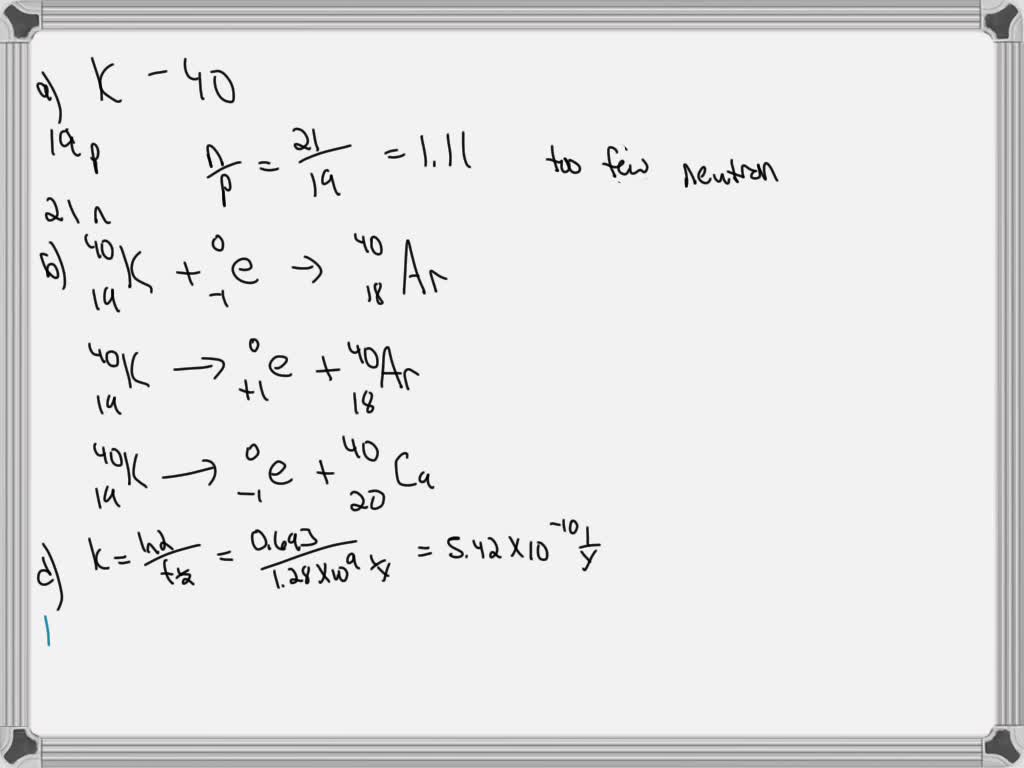 a) K - 40
19 p
n/p = 21/19 = 1.11 too few neutron
21 n
b) ⁴⁰₁₉K + ⁰₋₁e → ⁴⁰₁₈Ar
⁴⁰₁₉K → ⁰₊₁e + ⁴⁰₁₈Ar
⁴⁰₁₉K → ⁰₋₁e + ⁴⁰₂₀Ca
c) K = ln2/t½ = 0.693/1.28×10⁹ y = 5.42 × 10⁻¹⁰ 1/y